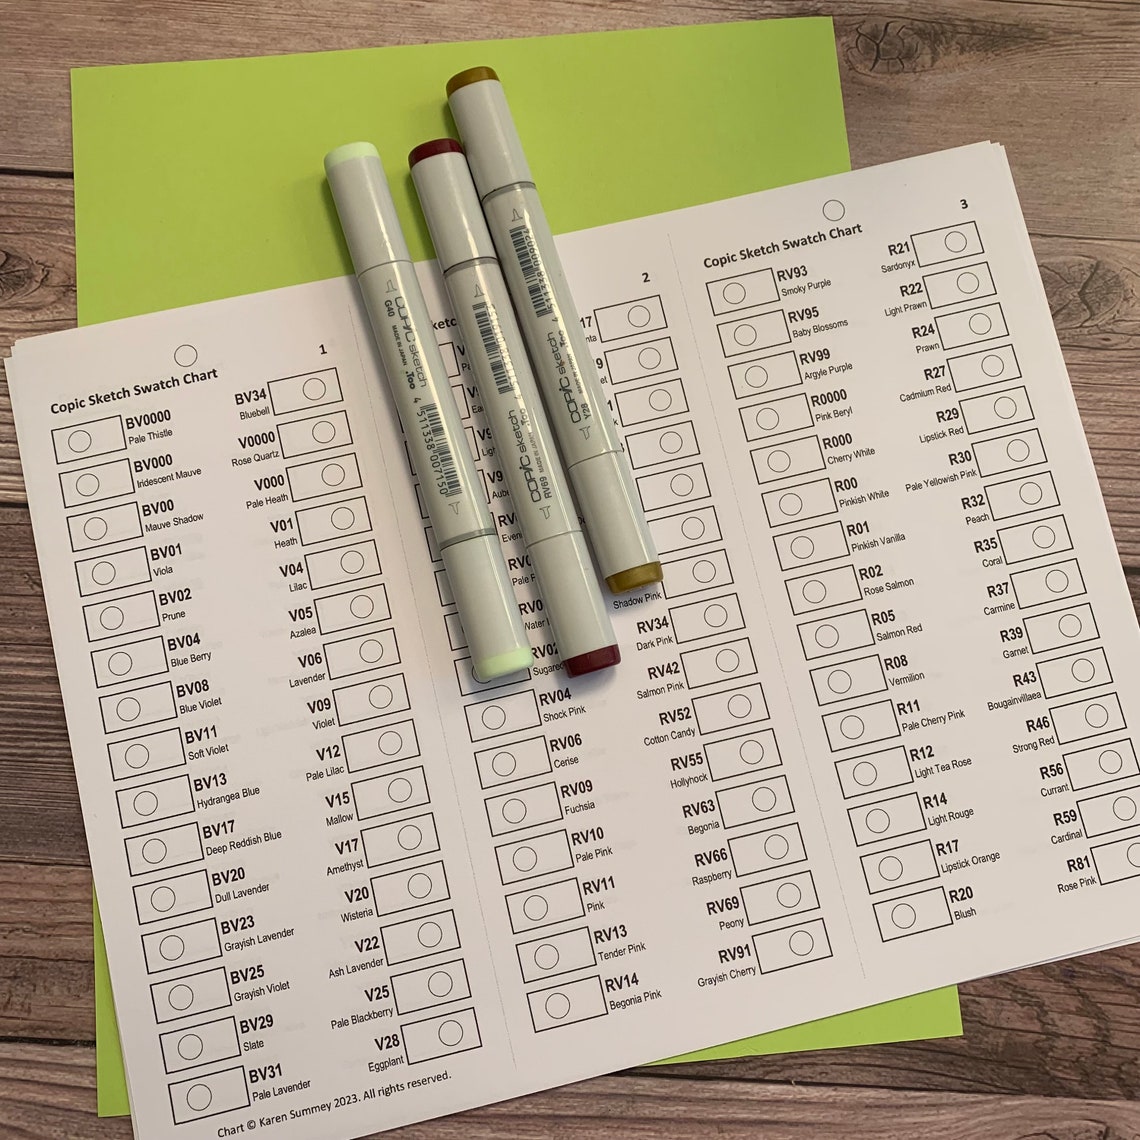 Copic Sketch Swatch Chart
1
BV0000
Pale Thistle
BV000
Iridescent Mauve
BV00
Mauve Shadow
BV01
Viola
BV02
Prune
BV04
Blue Berry
BV08
Blue Violet
BV11
Soft Violet
BV13
Hydrangea Blue
BV17
Deep Reddish Blue
BV20
Dull Lavender
BV23
Grayish Lavender
BV25
Grayish Violet
BV29
Slate
BV31
Pale Lavender
BV34
Bluebell
V0000
Rose Quartz
V000
Pale Heath
V01
Heath
V04
Lilac
V05
Azalea
V06
Lavender
V09
Violet
V12
Pale Lilac
V15
Mallow
V17
Amethyst
V20
Wisteria
V22
Ash Lavender
V25
Pale Blackberry
V28
Eggplant
Chart © Karen Summey 2023. All rights reserved.
G40
COPIC sketch
MADE IN JAPAN .Too
4 511338 007150
COPIC sketch
RV69 MADE IN JAPAN .Too
COPIC sketch
Y28 .Too
2
RV02
RV04
Shock Pink
RV06
Cerise
RV09
Fuchsia
RV10
Pale Pink
RV11
Pink
RV13
Tender Pink
RV14
Begonia Pink
Shadow Pink
RV34
Dark Pink
RV42
Salmon Pink
RV52
Cotton Candy
RV55
Hollyhock
RV63
Begonia
RV66
Raspberry
RV69
Peony
RV91
Grayish Cherry
Copic Sketch Swatch Chart
3
RV93
Smoky Purple
RV95
Baby Blossoms
RV99
Argyle Purple
R0000
Pink Beryl
R000
Cherry White
R00
Pinkish White
R01
Pinkish Vanilla
R02
Rose Salmon
R05
Salmon Red
R08
Vermilion
R11
Pale Cherry Pink
R12
Light Tea Rose
R14
Light Rouge
R17
Lipstick Orange
R20
Blush
R21
Sardonyx
R22
Light Prawn
R24
Prawn
R27
Cadmium Red
R29
Lipstick Red
R30
Pale Yellowish Pink
R32
Peach
R35
Coral
R37
Carmine
R39
Garnet
R43
Bougainvillaea
R46
Strong Red
R56
Currant
R59
Cardinal
R81
Rose Pink